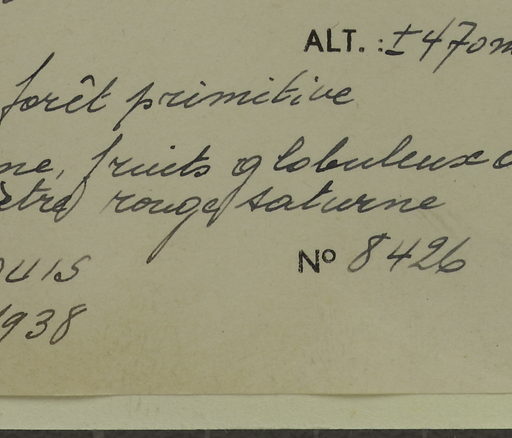 ALT. : ±470m
forêt primitive
fruits globuleux
rouge saturne
No 8426
1938